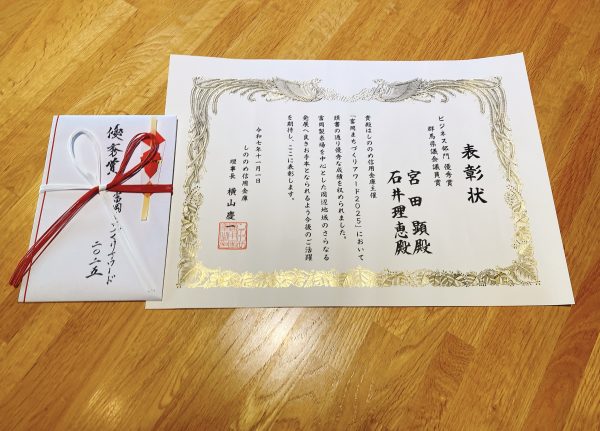 表彰状
ビジネス部門 優秀賞
群馬県議会議員賞
宮田 顕殿
石井理恵殿
貴殿はしののめ信用金庫主催
「富岡まちづくりアワード2025」において
頭書の通り優秀な成績を収められました。
富岡製糸場を中心とした周辺地域のさらなる
発展へ良きお手本となられるよう今後のご活躍
を期待し、ここに表彰します。
令和七年十一月一日
しののめ信用金庫
理事長 横山 慶一
優秀賞
二〇二五